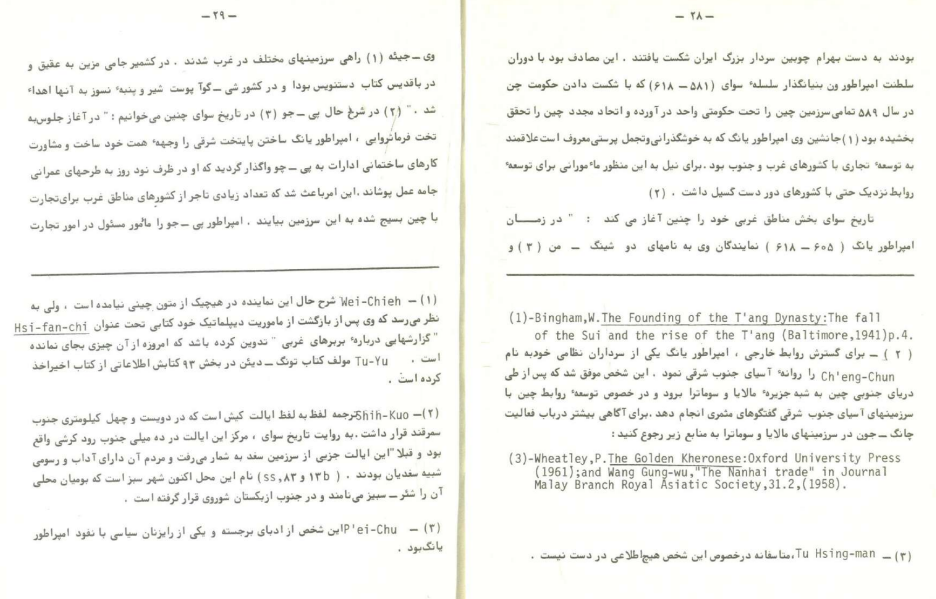 — ۲۸ —
بودند به دست بهرام چوبین سردار بزرگ ایران شکست یافتند . این مصادف بود با دوران
سلطنت امپراطور ون بنیانگذار سلسله ٔ سوای (۵۸۱ — ۶۱۸) که با شکست دادن حکومت چن
در سال ۵۸۹ تمامی سرزمین چین را تحت حکومتی واحد در آورده و اتحاد مجدد چین را تحقق
بخشیده بود (۱) جانشین وی امپراطور یانگ که به خوشگذرانی وتجمل پرستی معروف است علاقمند
به توسعه ٔ تجاری با کشورهای غرب و جنوب بود .برای نیل به این منظور مأمورانی برای توسعه ٔ
روابط نزدیک حتی با کشورهای دور دست گسیل داشت . (۲)
تاریخ سوای بخش مناطق غربی خود را چنین آغاز می کند : " در زمـــــان
امپراطور یانگ ( ۶۰۵ — ۶۱۸ ) نمایندگان وی به نامهای دو شینگ — من ( ۳ ) و
(1)-Bingham,W.The Founding of the T'ang Dynasty:The fall
of the Sui and the rise of the T'ang (Baltimore,1941)p.4.
( ۲ ) — برای گسترش روابط خارجی ، امپراطور یانگ یکی از سرداران نظامی خودبه نام
Ch'eng-Chun را روانه ٔ آسیای جنوب شرقی نمود . این شخص موفق شد که پس از طی
دریای جنوبی چین به شبه جزیره ٔ مالایا و سوماترا برود و در خصوص توسعه ٔ روابط چین با
سرزمینهای آسیای جنوب شرقی گفتگوهای مثمری انجام دهد .برای آگاهی بیشتر درباب فعالیت
چانگ — جون در سرزمینهای مالایا و سوماترا به منابع زیر رجوع کنید :
(3)-Wheatley,P.The Golden Kheronese:Oxford University Press
(1961);and Wang Gung-wu,"The Nanhai trade" in Journal
Malay Branch Royal Asiatic Society,31.2,(1958).
(۳) — Tu Hsing-man،متاسفانه درخصوص این شخص هیچ اطلاعی در دست نیست .
— ۲۹ —
وی — جیئه (۱) راهی سرزمینهای مختلف در غرب شدند . در کشمیر جامی مزین به عقیق و
در باقدیس کتاب دستنویس بودا و در کشور شی — گوآ پوست شیر و پنبه ٔ نسوز به آنها اهداء
شد . " (۲) در شرح حال پی — جو (۳) در تاریخ سوای چنین می‌خوانیم : " در آغاز جلوس به
تخت فرمانروایی ، امپراطور یانگ ساختن پایتخت شرقی را وجهه ٔ همت خود ساخت و مشاورت
کارهای ساختمانی ادارات به پی — چو واگذار گردید که او در ظرف نود روز به طرحهای عمرانی
جامه عمل پوشاند .این امرباعث شد که تعداد زیادی تاجر از کشورهای مناطق غرب برای تجارت
با چین بسیج شده به این سرزمین بیایند . امپراطور پی — جو را مأمور مسئول در امور تجارت
(۱) — Wei-Chieh شرح حال این نماینده در هیچیک از متون چینی نیامده است ، ولی به
نظر می‌رسد که وی پس از بازگشت از ماموریت دیپلماتیک خود کتابی تحت عنوان Hsi-fan-chi
"گزارشهایی درباره ٔ بربرهای غربی " تدوین کرده باشد که امروزه از آن چیزی بجای نمانده
است . Tu-Yu مولف کتاب تونگ — دیئن در بخش ۹۳ کتابش اطلاعاتی از کتاب اخیراخذ
کرده است .
(۲)— Shih-Kuo ترجمه لفظ به لفظ ایالت کیش است که در دویست و چهل کیلومتری جنوب
سمرقند قرار داشت .به روایت تاریخ سوای ، مرکز این ایالت در ده میلی جنوب رود کرشی واقع
بود و قبلا" این ایالت جزیی از سرزمین سغد به شمار می‌رفت و مردم آن دارای آداب و رسومی
شبیه سغدیان بودند . ( ss,۸۳ و ۱۳b) نام این محل اکنون شهر سبز است که بومیان محلی
آن را شئر — سبیز می‌نامند و در جنوب ازبکستان شوروی قرار گرفته است .
(۳) — P'ei-Chu این شخص از ادبای برجسته و یکی از رایزنان سیاسی با نفوذ امپراطور
یانگ بود .